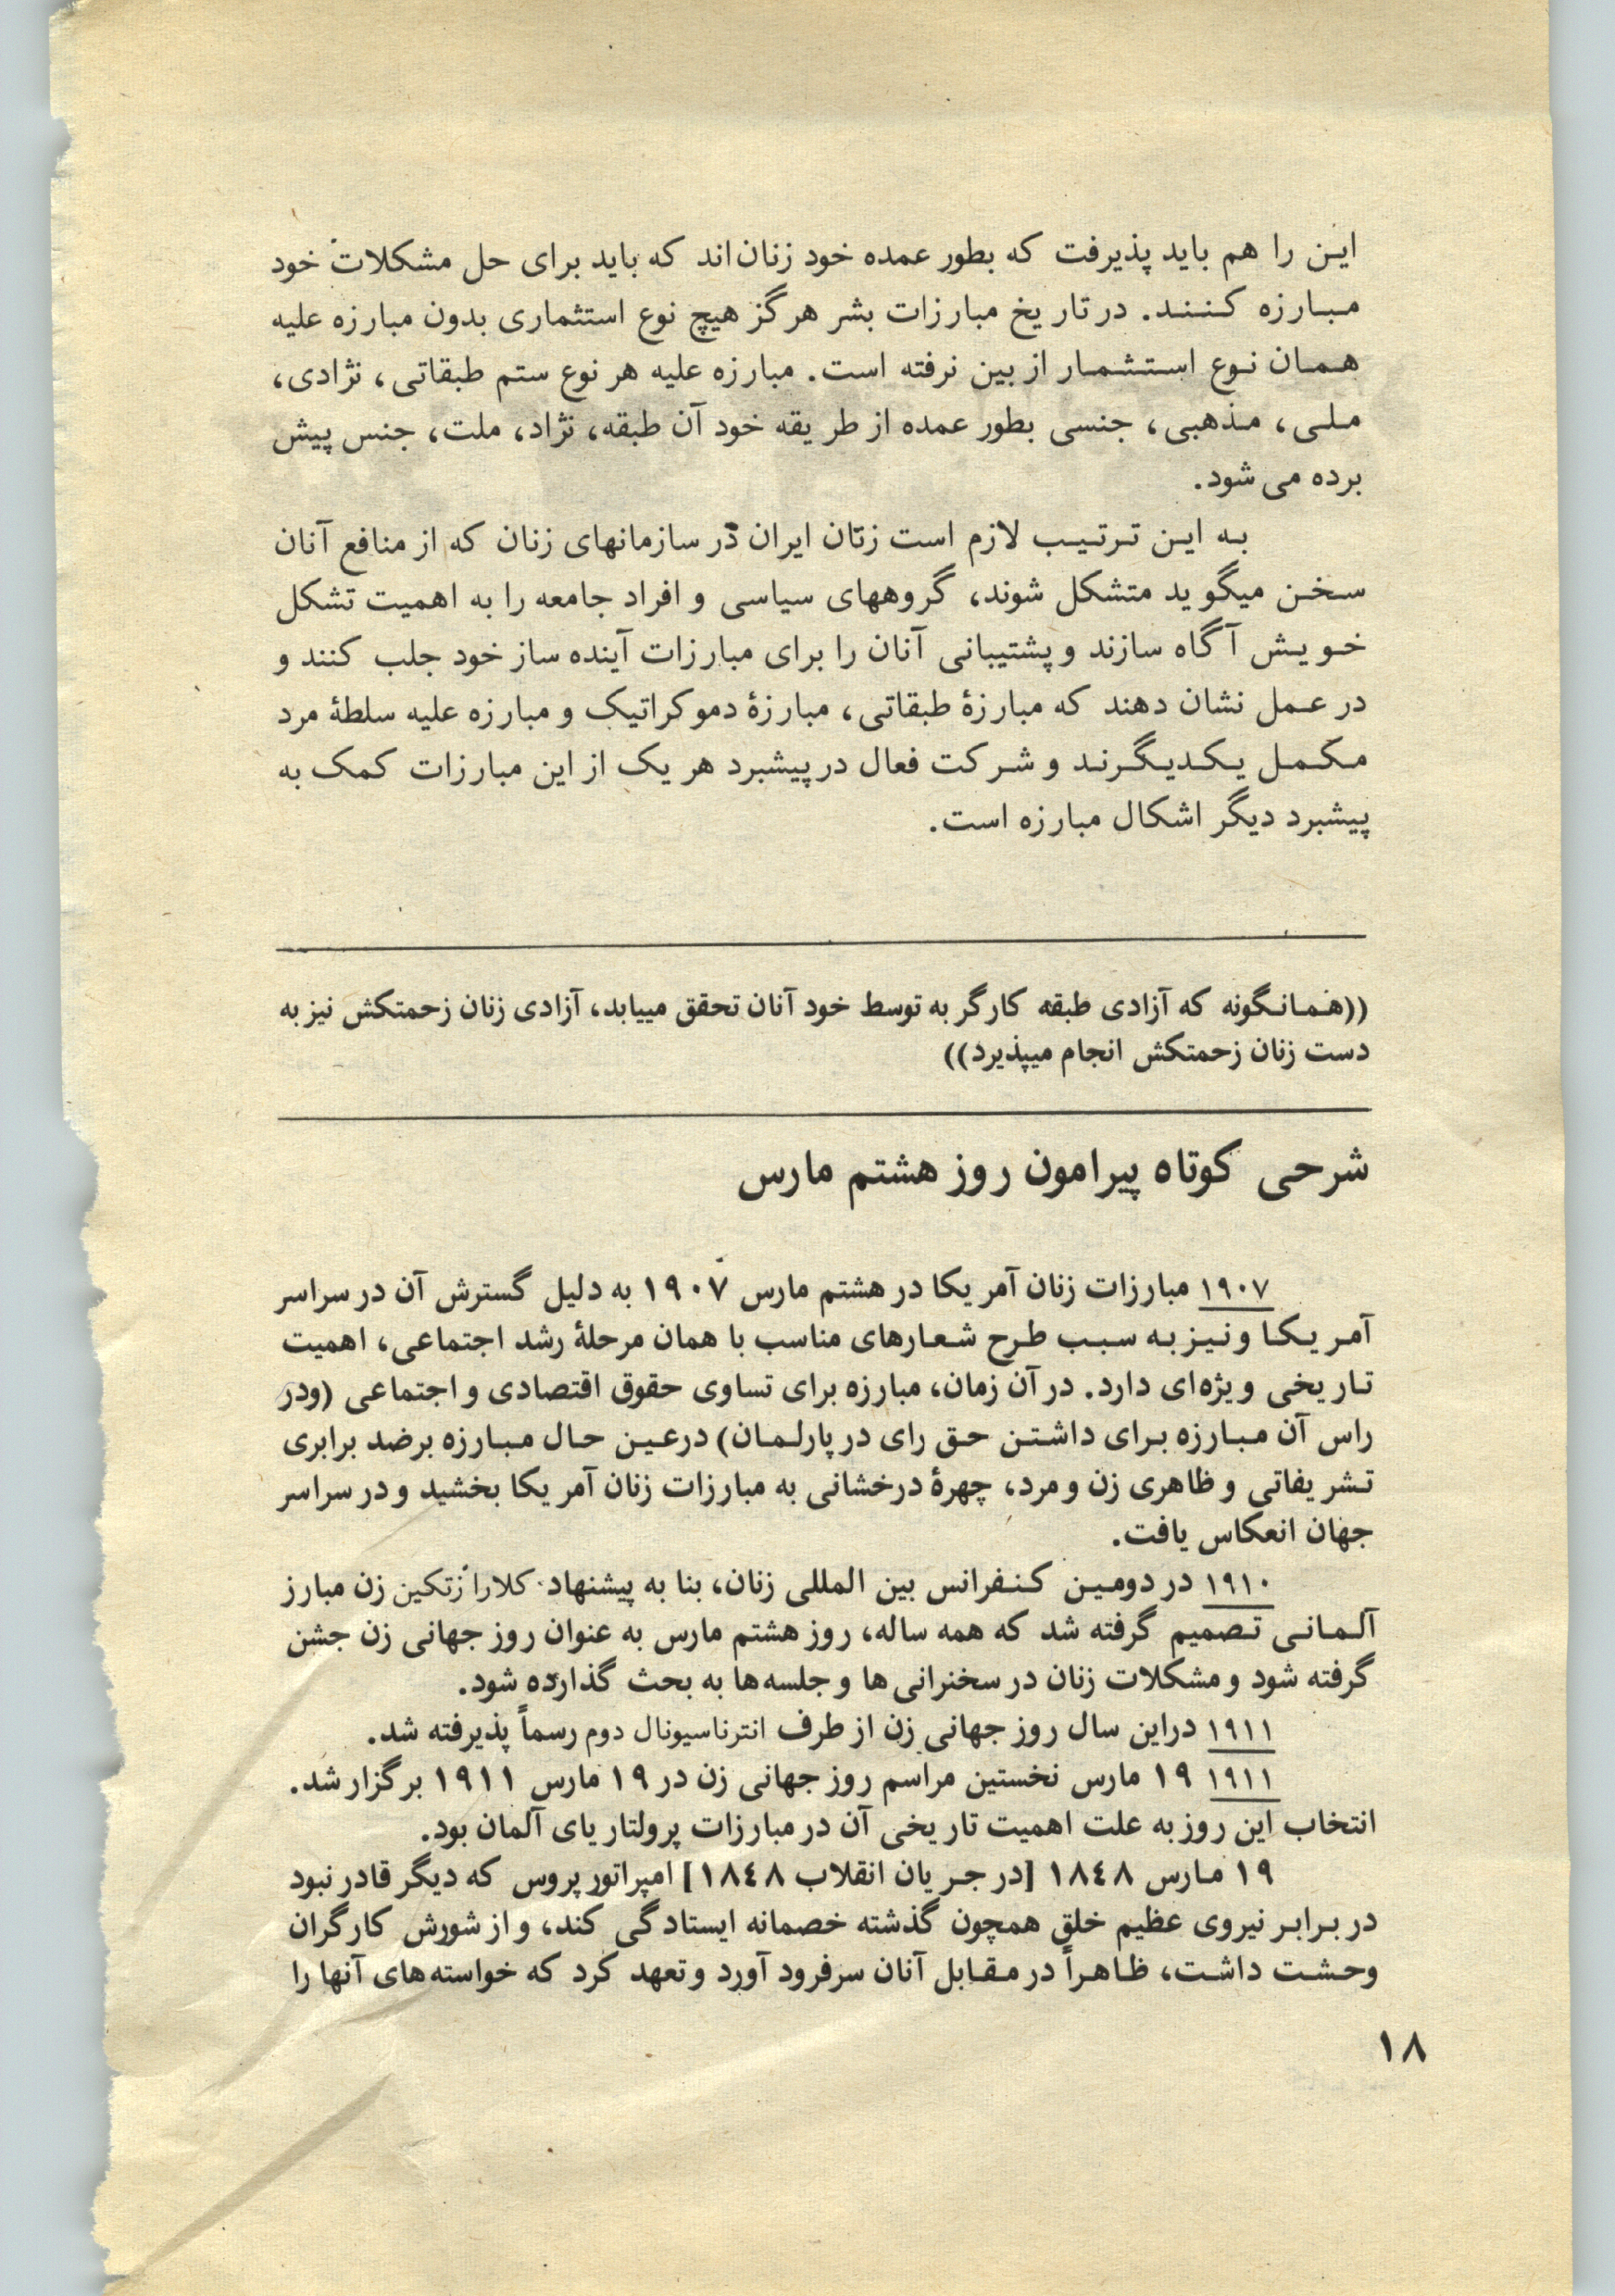 این را هم باید پذیرفت که بطور عمده خود زنان‌اند که باید برای حل مشکلات خود
مبارزه کنند. در تاریخ مبارزات بشر هرگز هیچ نوع استثماری بدون مبارزه علیه
همان نوع استثمار از بین نرفته است. مبارزه علیه هر نوع ستم طبقاتی، نژادی،
ملی، مذهبی، جنسی بطور عمده از طریقه خود آن طبقه، نژاد، ملت، جنس پیش
برده می‌شود.
به این ترتیب لازم است زنان ایران در سازمانهای زنان که از منافع آنان
سخن میگوید متشکل شوند، گروههای سیاسی و افراد جامعه را به اهمیت تشکل
خویش آگاه سازند و پشتیبانی آنان را برای مبارزات آینده ساز خود جلب کنند و
در عمل نشان دهند که مبارزهٔ طبقاتی، مبارزهٔ دموکراتیک و مبارزه علیه سلطهٔ مرد
مکمل یکدیگرند و شرکت فعال در پیشبرد هر یک از این مبارزات کمک به
پیشبرد دیگر اشکال مبارزه است.
((همانگونه که آزادی طبقه کارگر به توسط خود آنان تحقق مییابد، آزادی زنان زحمتکش نیز به
دست زنان زحمتکش انجام میپذیرد))
شرحی کوتاه پیرامون روز هشتم مارس
۱۹۰۷ مبارزات زنان آمریکا در هشتم مارس ۱۹۰۷ به دلیل گسترش آن در سراسر
آمریکا و نیز به سبب طرح شعارهای مناسب با همان مرحلهٔ رشد اجتماعی، اهمیت
تاریخی ویژه‌ای دارد. در آن زمان، مبارزه برای تساوی حقوق اقتصادی و اجتماعی (ودر
راس آن مبارزه برای داشتن حق رای در پارلمان) درعین حال مبارزه برضد برابری
تشریفاتی و ظاهری زن و مرد، چهرهٔ درخشانی به مبارزات زنان آمریکا بخشید و در سراسر
جهان انعکاس یافت.
۱۹۱۰ در دومین کنفرانس بین المللی زنان، بنا به پیشنهاد کلارا زتکین زن مبارز
آلمانی تصمیم گرفته شد که همه ساله، روز هشتم مارس به عنوان روز جهانی زن جشن
گرفته شود و مشکلات زنان در سخنرانی‌ها و جلسه‌ها به بحث گذارده شود.
۱۹۱۱ دراین سال روز جهانی زن از طرف انترناسیونال دوم رسماً پذیرفته شد.
۱۹۱۱ ۱۹ مارس نخستین مراسم روز جهانی زن در ۱۹ مارس ۱۹۱۱ برگزار شد.
انتخاب این روز به علت اهمیت تاریخی آن در مبارزات پرولتاریای آلمان بود.
۱۹ مارس ۱۸٤۸ [در جریان انقلاب ۱۸٤۸] امپراتور پروس که دیگر قادر نبود
در برابر نیروی عظیم خلق همچون گذشته خصمانه ایستادگی کند، و از شورش کارگران
وحشت داشت، ظاهراً در مقابل آنان سرفرود آورد و تعهد کرد که خواسته‌های آنها را
۱۸